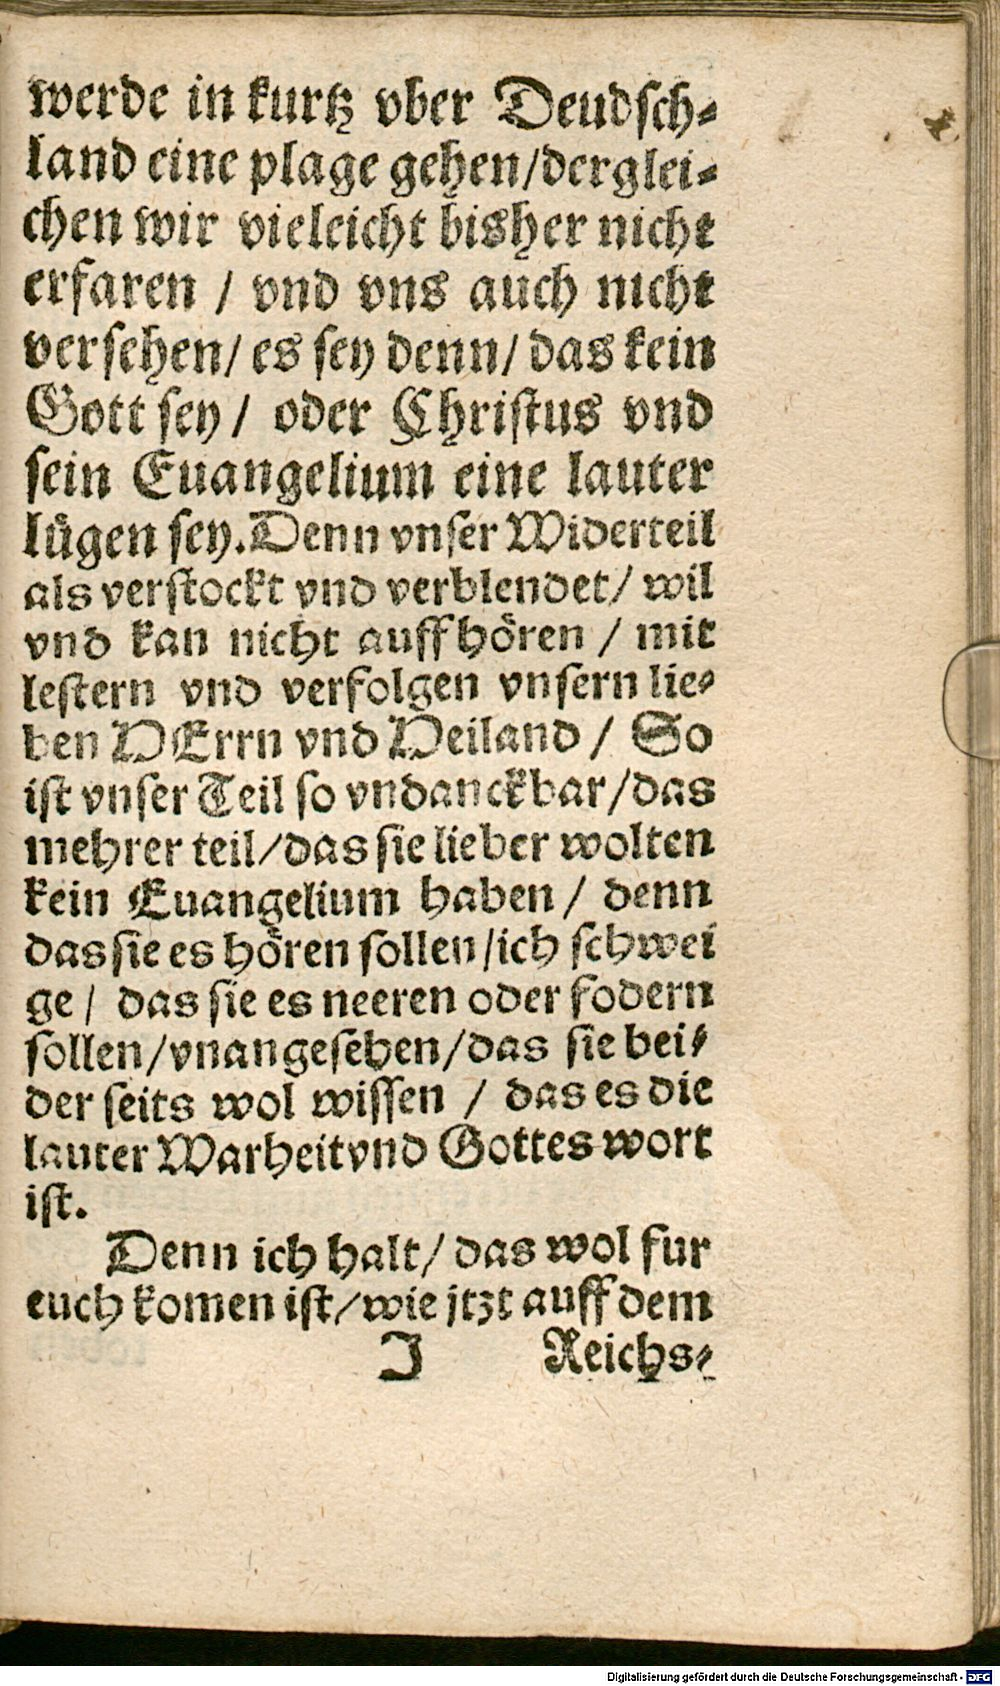 werde in kurtz vber Deudsch-
land eine plage gehen/derglei-
chen wir vieleicht bisher nicht
erfaren / vnd vns auch nicht
versehen/ es sey denn/ das kein
Gott sey / oder Christus vnd
sein Euangelium eine lauter
lügen sey. Denn vnser Widerteil
als verstockt vnd verblendet/ wil
vnd kan nicht auffhören / mit
lestern vnd verfolgen vnsern lie-
ben HErrn vnd Heiland / So
ist vnser Teil so vndanckbar/das
mehrer teil/das sie lieber wolten
kein Euangelium haben / denn
das sie es hören sollen/ich schwei
ge / das sie es neeren oder fodern
sollen/vnangesehen/das sie bei-
der seits wol wissen / das es die
lauter Warheit vnd Gottes wort
ist.
Denn ich halt/ das wol fur
euch komen ist/wie jtzt auff dem
J Reichs-
Digitalisierung gefördert durch die Deutsche Forschungsgemeinschaft - DFG